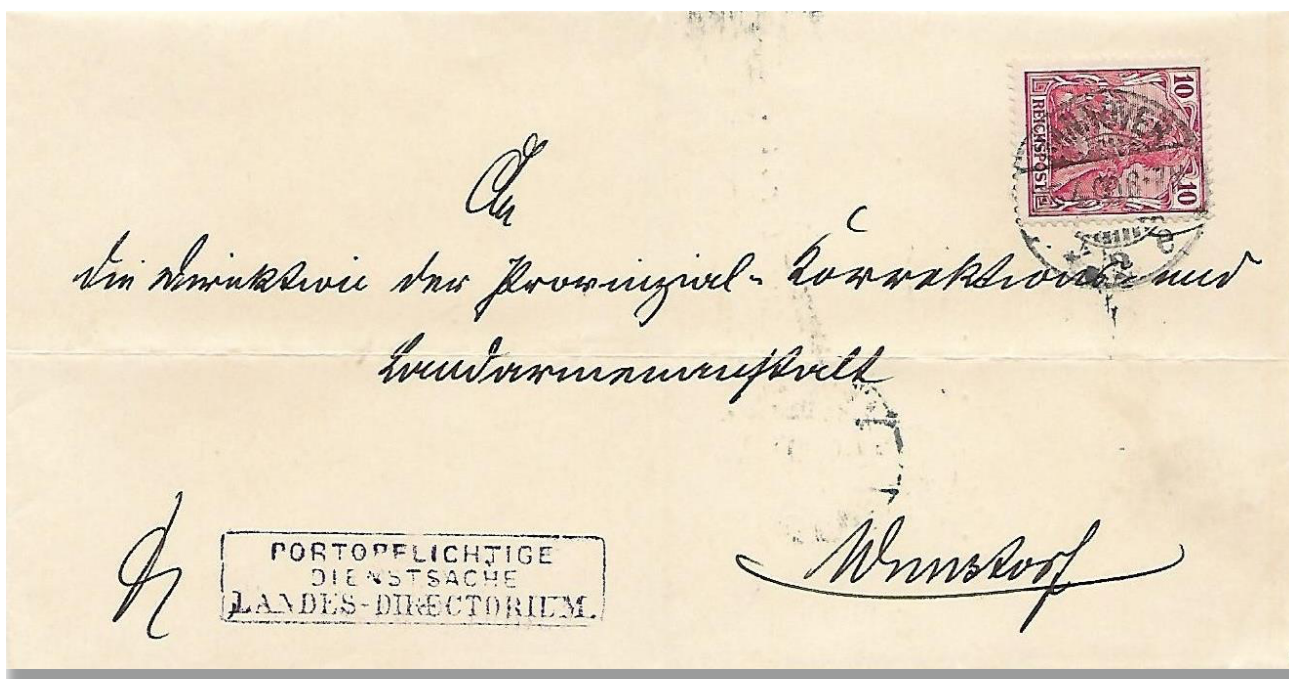 10 REICHSPOST 10
HANNOVER
An
die Direktion der Provinzial-Korrektions und
Landarmenanstalt
Wunstorf
PORTOPFLICHTIGE
DIENSTSACHE
LANDES-DIRECTORIUM.